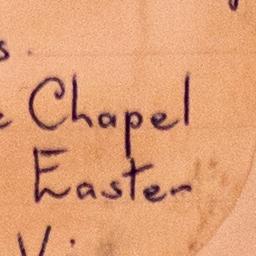 Chapel
Easter